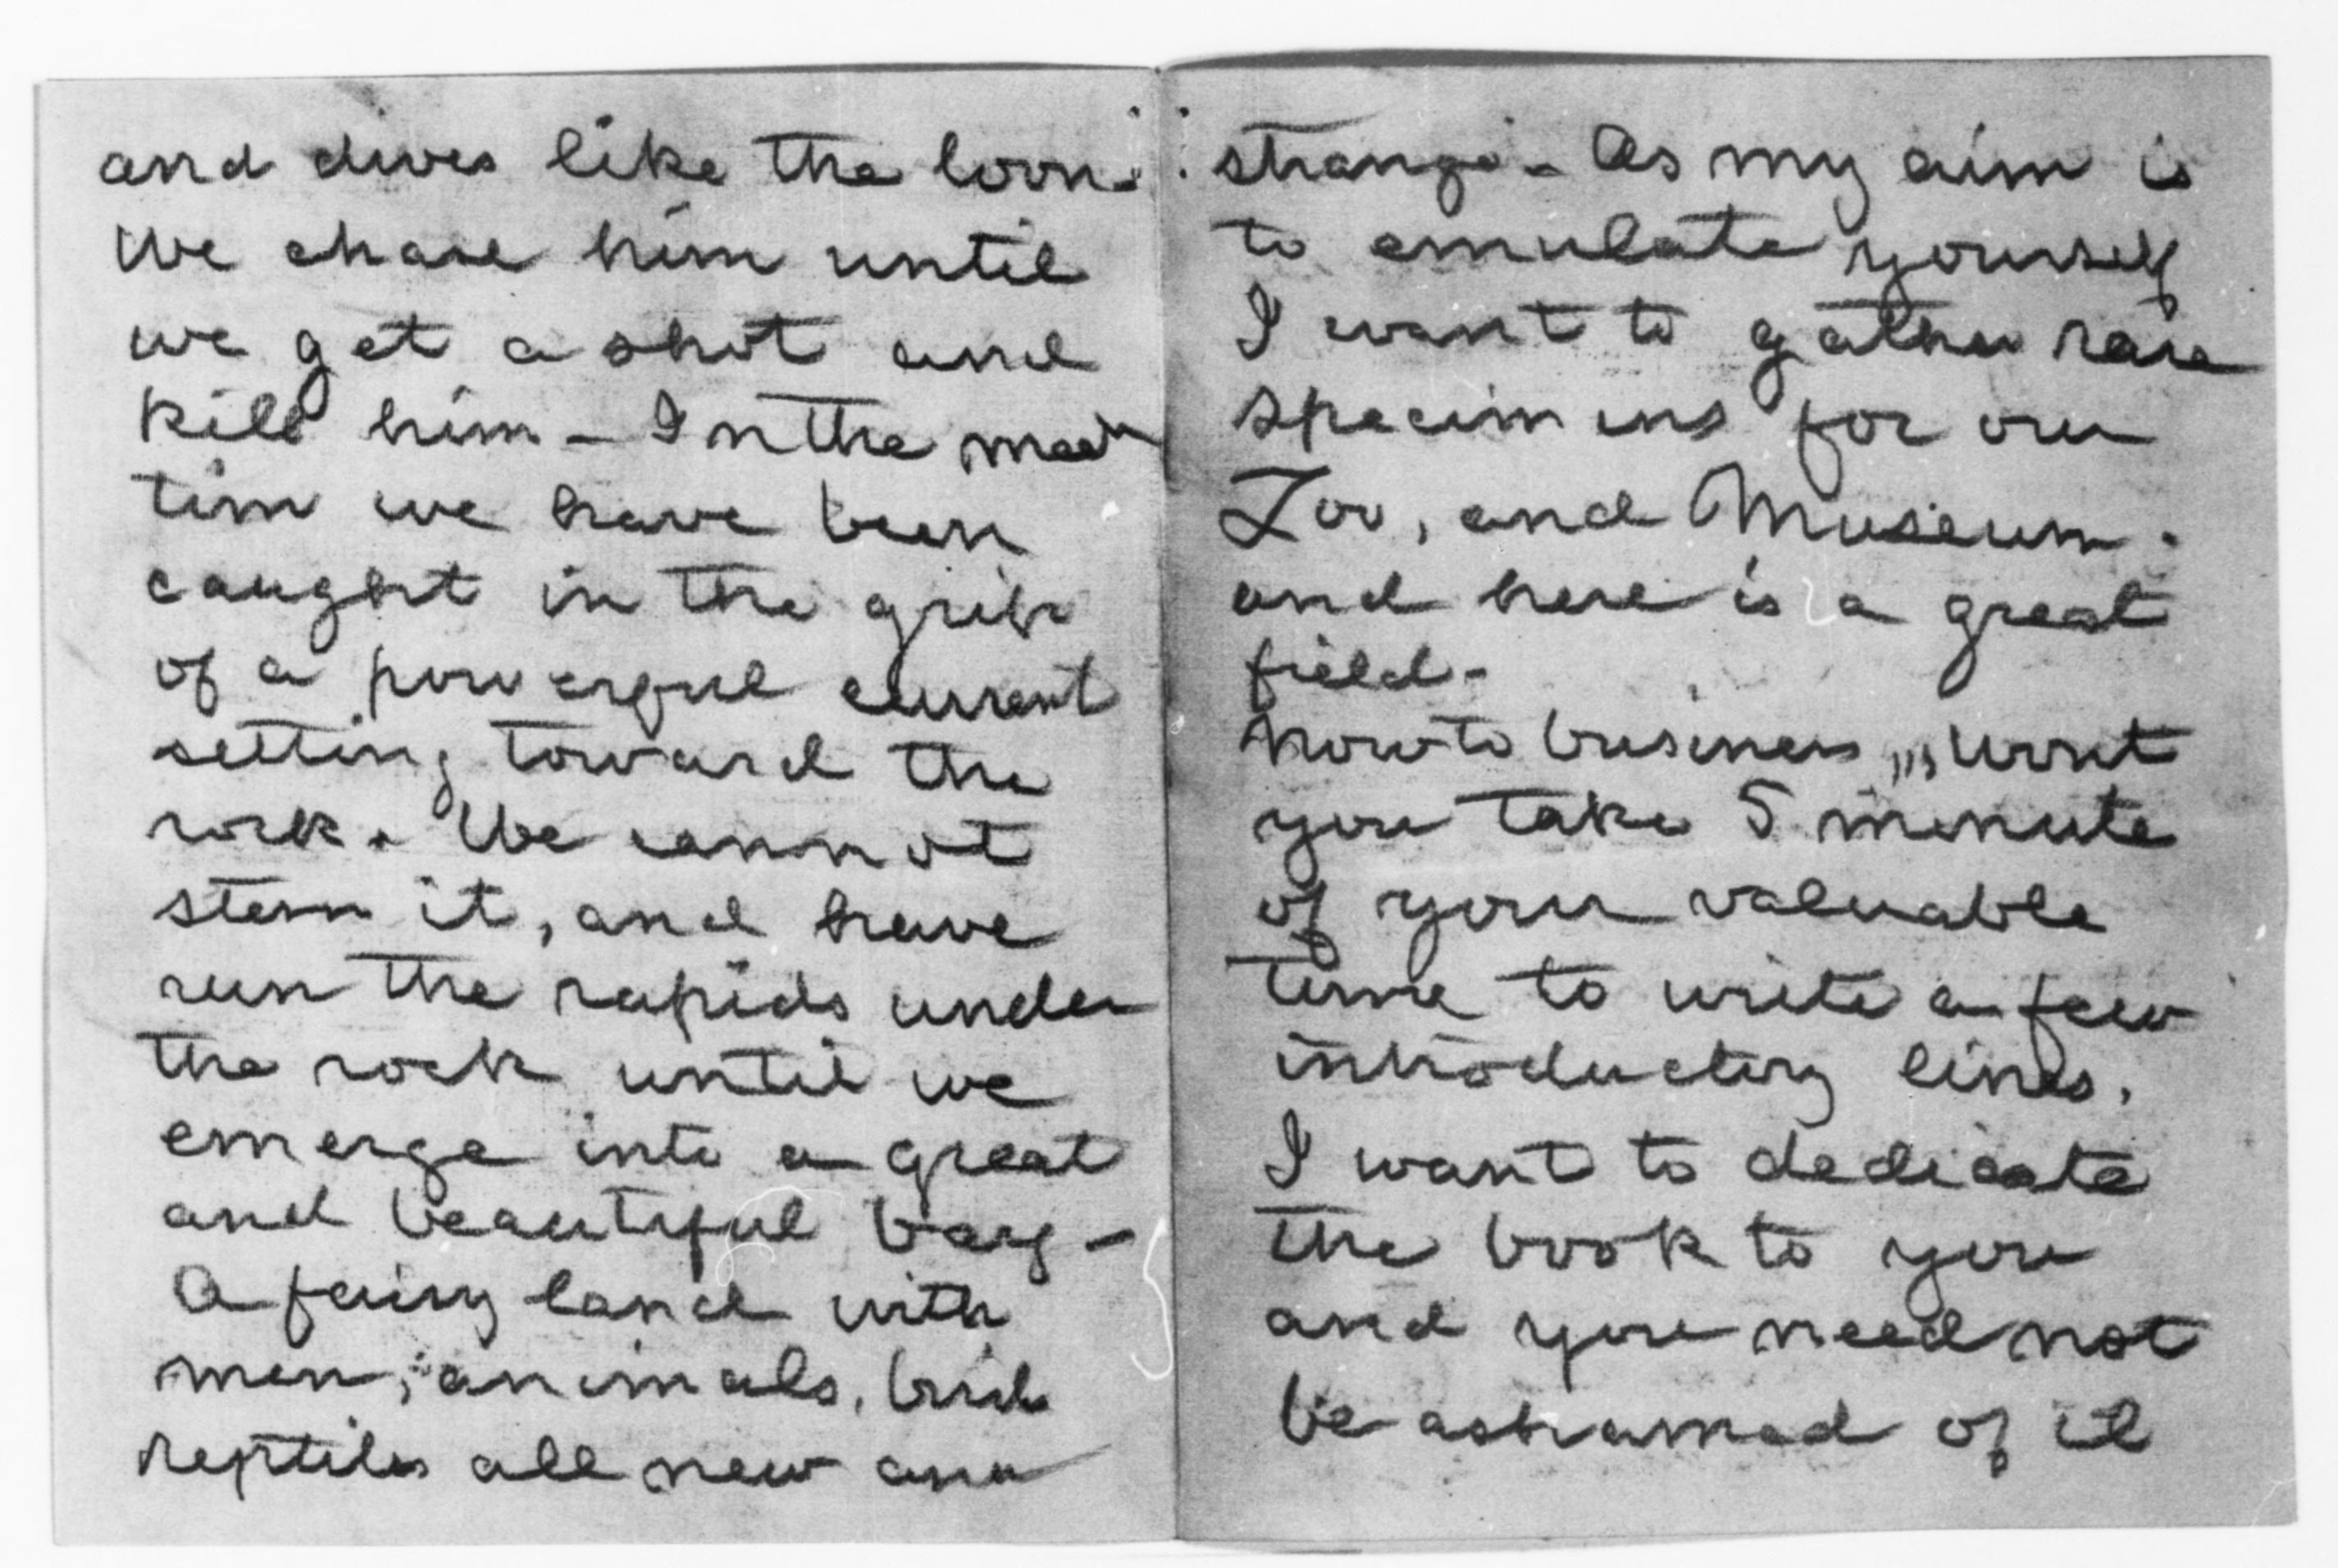 and dives like the loon.
We chase him until
we get a shot and
kill him – In the mean
tim we have been
caught in the grip
of a powerful current
setting toward the
rock. We cannot
stem it, and have
run the rapids under
the rock until we
emerge into a great
and beautiful bay –
A fairy land with
men, animals, birds
reptiles all new and
strange – As my aim is
to emulate yourself
I want to gather rare
specimens for our
Zoo, and Museum.
and here is a great
field –
Now to business,,,, Wont
you take 5 minute
of your valuable
time to write a few
introductory lines.
I want to dedicate
the book to you
and you need not
be ashamed of it